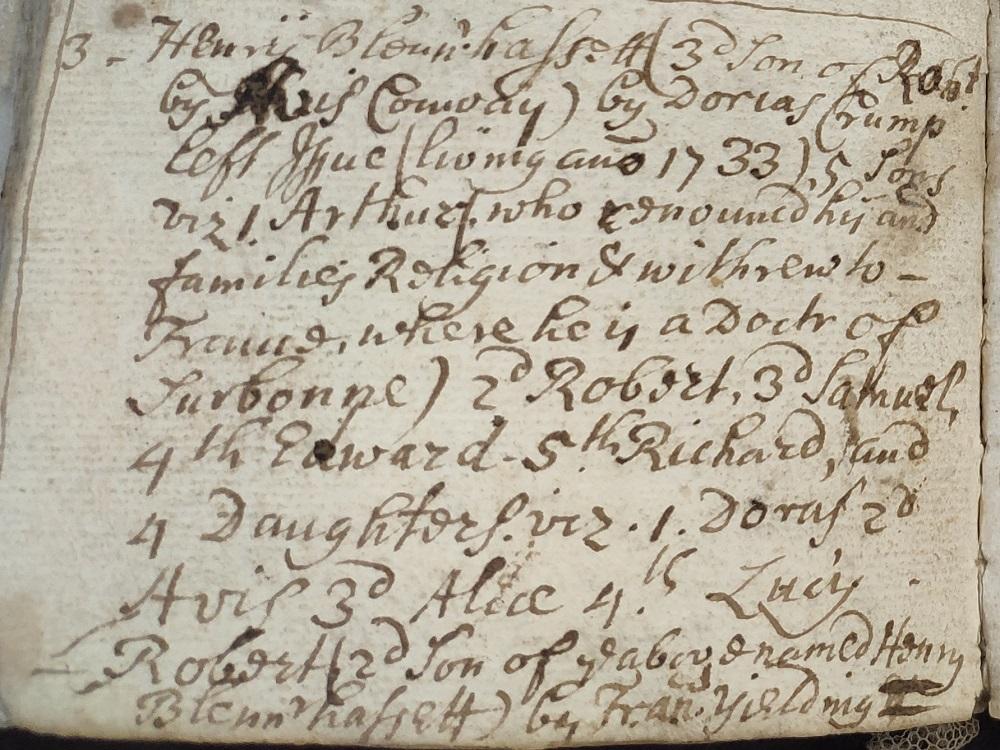 3 - Henry Blennrhassett (3d Son of Robt
by Avis Conway) by Dorcas Crump
left Issue (living ano 1733) 5 Sons
viz 1. Arthur (who renouncd his and
families Religion & withrew to -
France, where he is a Doctr of
Surbonne) 2d Robert, 3d Samuel,
4th Edward - 5th Richard, and
4 Daughters. viz. 1. Doras 2d
Avis 3d Alice 4.th Lucy
- Robert (2d Son of ye above named Henry
Blennrhassett) by Fran: Yielding